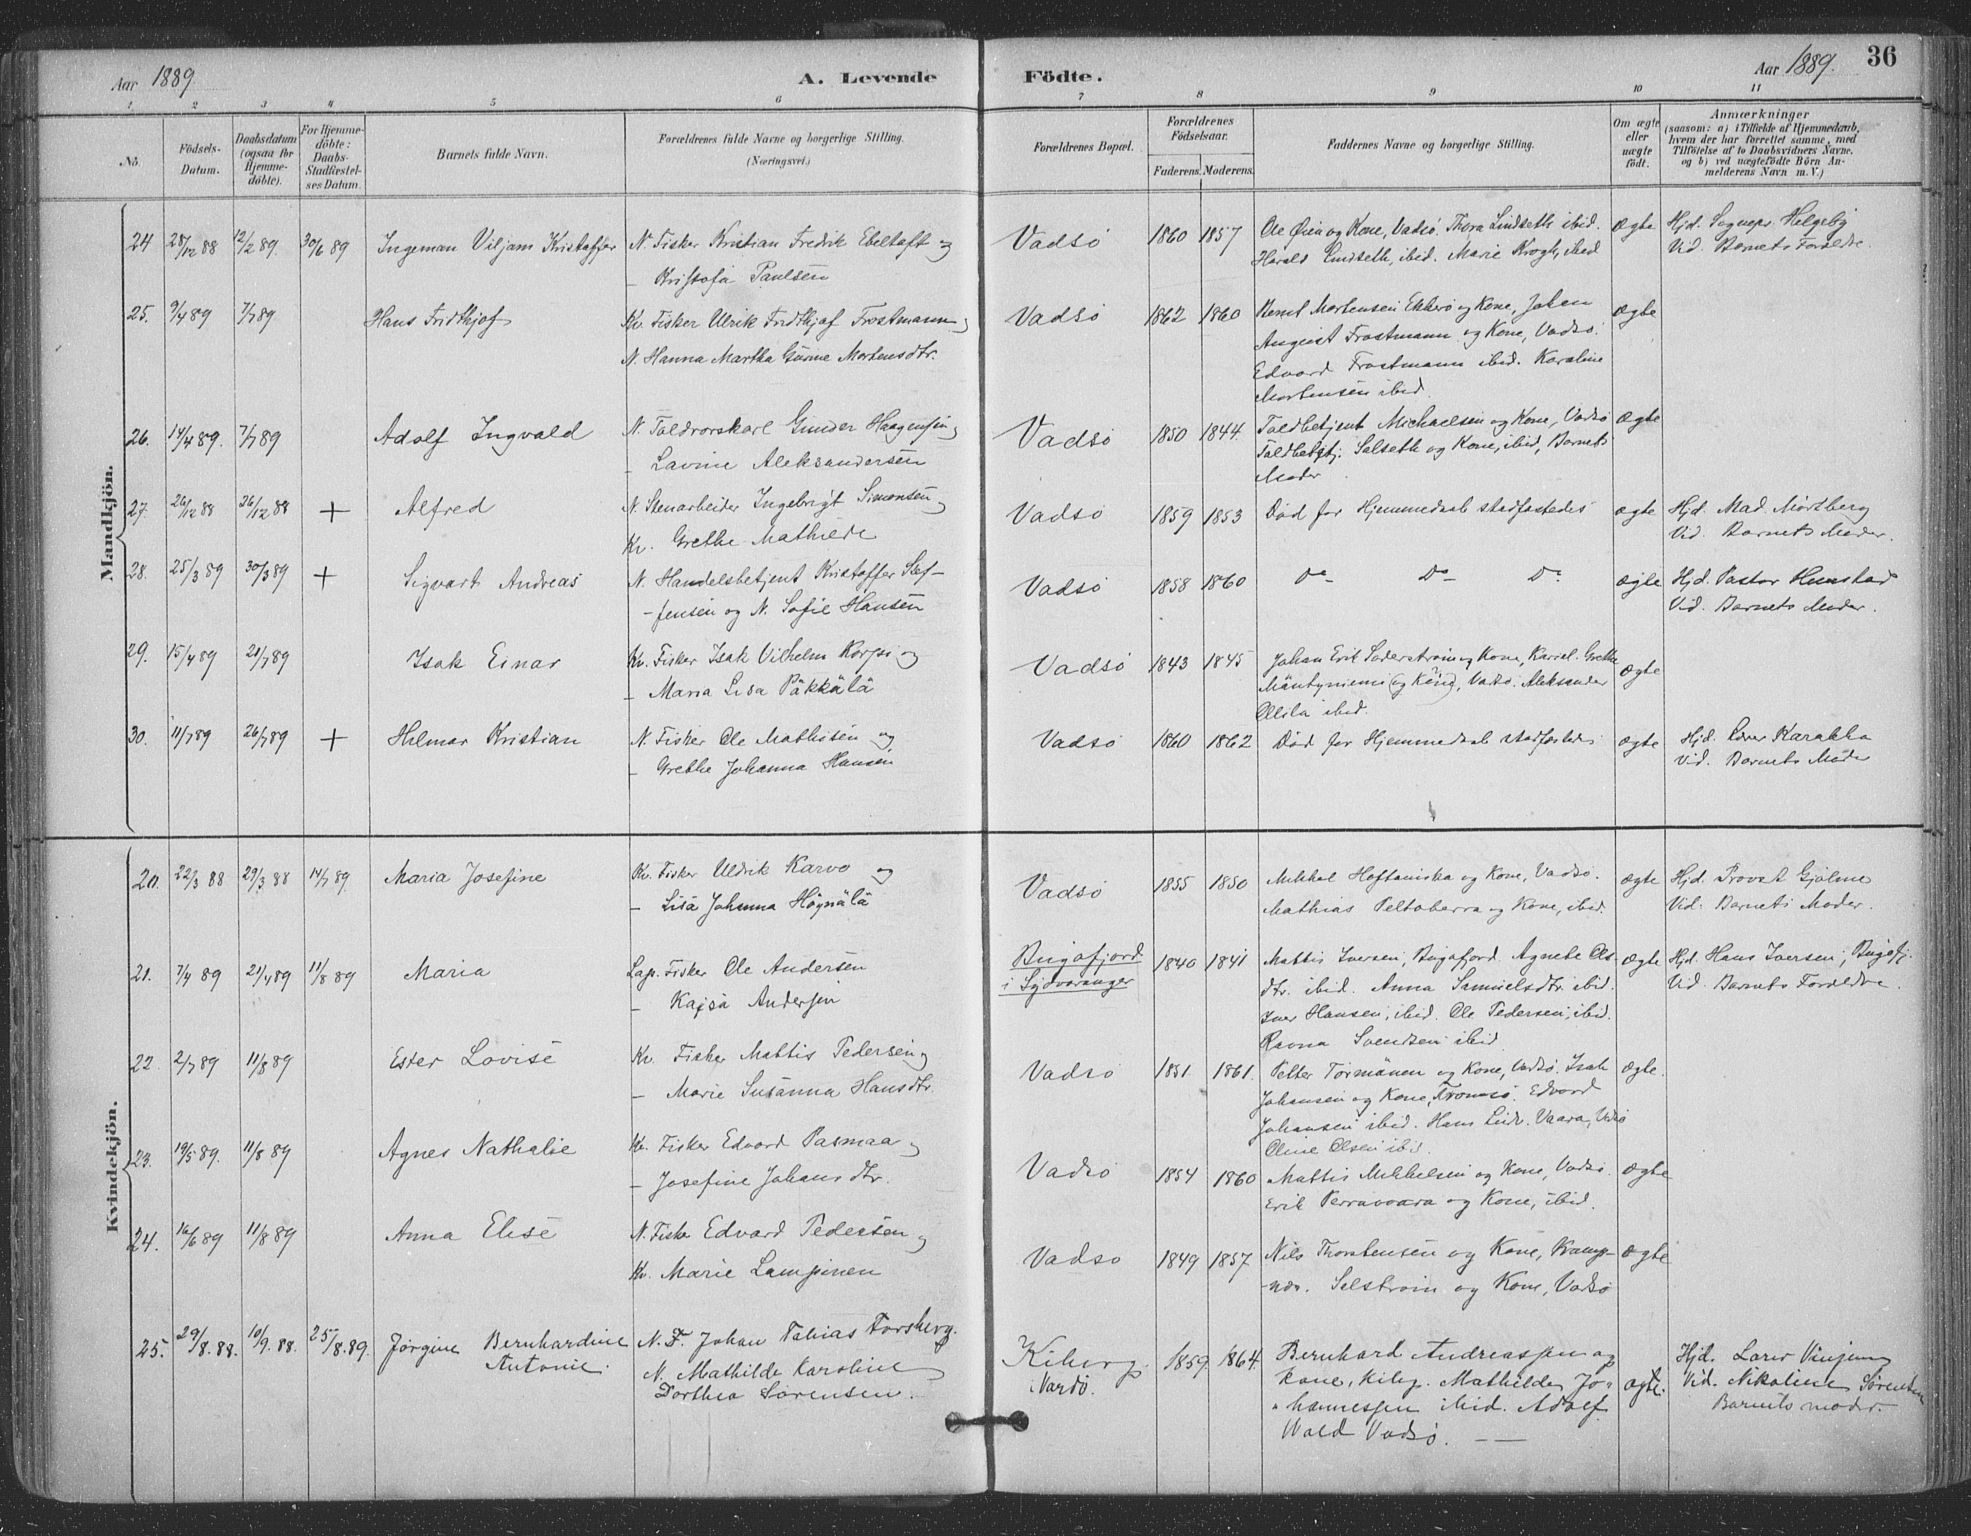 Aar 1889
A. Levende
Födte.
Aar 1889.
36
1 2 3 4 5 6 7 8 9 10 11
No.
Födsels-
Datum.
Daabsdatum
(ogsaa for
Hjemme-
döbte).
For Hjemme-
döbte:
Daabs-
Stadfæstel-
ses Datum.
Barnets fulde Navn.
Forældrenes fulde Navne og borgerlige Stilling.
(Næringsvei.)
Forældrenes Bopæl.
Forældrenes
Födselsaar.
Faderens. Moderens.
Faddernes Navne og borgerlige Stilling.
Om ægte
eller
uægte
født.
Anmærkninger
(saasom: a) i Tilfælde af Hjemmedaab,
hvem der har forrettet samme, med
Tilföielse af to Daabsvidners Navne,
og b) ved uægtefödte Börn An-
melderens Navn m. V.)
Mandkjön.
24 28/12 88 12/2 89. 30/6 89 Ingeman Viljam Kristoffer N. Fisker Kristian Fredrik Ebeltoft og Vadsö 1860 1857 Ole Øien og Kone, Vadsö. Thora Lindseth ibid. Ægte Hjd. Sognepr. Helgeby
– Kristofa Paulsen Harald Lindseth, ibid. Marie Krogh, ibid Vid. Barnets Foreldre.
25. 9/4 89 7/7 89 Hans Fridthjof Kv. Fisker Ulrik Fridthjof Frostmann og Vadsö 1862 1860 Bernt Mortensen Ekkerö og Kone, Johan Ægte
N. Hanna Martha Gurine Mortensdtr. August Frostmann og Kone, Vadsö.
Edvard Frostmann ibid. Karoline
Mortensen ibid.
26. 14/4 89. 7/7 89 Adolf Ingvald N. Toldrorskarl Gunder Haagensen og Vadsö 1850 1844. Toldbetjent Michaelsen og Kone, Vadsö Ægte
– Lavine Aleksandersen Toldbetjt. Selseth og Kone, ibid, Barnets
Moder
27. 26/12 88 26/12 88 + Alfred N. Stenarbeider Ingebrigt Simonsen og Vadsö 1859 1853 Död för Hjemmedaab stadfæstedes ægte Hjd. Mad. Mörtzberg
Kv. Grethe Mathiede Vid. Barnets Moder.
28. 25/3 89 30/3 89 + Sigvart Andreas N. Handelsbetjent Kristoffer Stef- Vadsö 1858 1860 Do – Do – Do ægte Hjd. Pastor Hunstad
– fensen og N. Sofie Hansen Vid. Barnets Moder.
29. 15/4 89 21/7 89 Isak Einar Kv. Fisker Isak Vilhelm Korpi og Vadsö 1843 1845 Johan Erik Soderstrøm og Kone, Kariel. Grethe ægte
– Maria Lisa Päkkälä Mäntyniemi (og Kone), Vadsö. Aleksander
Ollila ibid.
30. 11/7 89 26/7 89 + Hilmar Kristian N. Fisker Ole Mathisen og Vadsö 1860 1862 Död før Hjemmedaab stadfæstedes ægte Hjd. Lærer Karakka
– Grethe Johanna Hansen Vid. Barnets Moder
Kvindekjön.
20. 22/3 88 29/3 88 14/7 89. Maria Josefine Kv. Fisker Uldrik Karvo og Vadsö 1855 1850 Mikkal Hoftaniska og Kone, Vadsö. ægte Hjd. Provst Gjölme
– Lisa Johanna Höynälä Mathias Peltoberra og Kone, ibid. Vid. Barnets Moder.
21. 7/4 89 21/4 89 11/8 89 Maria Lap. Fisker Ole Andersen Bugøfjord 1840 1841 Mattis Iversen, Bugøfjord. Agnete Ols- ægte Hjd. Hans Iversen, Bugøfj.
– Kajsa Andersen i Sydvaranger dtr. ibid. Anna Samuelsdtr. ibid. Vid. Barnets Foreldre.
Iver Hansen, ibid. Ole Pedersen, ibid.
Ravna Svendsen ibid.
22. 2/7 89 11/8 89 Ester Lovise Kv. Fisker Mattis Pedersen og Vadsö 1851 1861. Petter Törmänen og Kone, Vadsö. Isak ægte.
– Marie Susanna Hansdtr. Johansen og Kone, Tromsö. Edvard
Johansen ibid. Hans Lidr. Vaara, Vadsö
Oline Olsen ibid.
23. 19/5 89. 11/8 89 Agnes Nathalie Kv. Fisker Edvard Pasmaa og Vadsö 1854 1860 Mattis Mikkelsen og Kone, Vadsö. ægte
– Josefine Johansdtr. Erik Perravaara og Kone, ibid.
24. 16/6 89 11/8 89 Anna Elise N. Fisker Edvard Pedersen og Vadsö 1849 1857 Nils Thorstensen og Kone, Kramp- ægte
Kv. Marie Lampinen næs. Selström og Kone, Vadsö
25. 29/8.88. 10/9.88. 25/8.89. Jørgine Bernhardine N. F. Johan Tobias Forsberg. Kiberg 1859. 1864. Bernhard Andreassen og ægte. Hjd. Lærer Vinjevog
Antonie. N. Mathilde Karoline i Vardö. kone, Kibg. Mathilde Jo- Vid. Nikoline Sørensen
Dorthea Sørensen. hannessen ibid. Adolf Barnets moder.
Wald Vadsø.